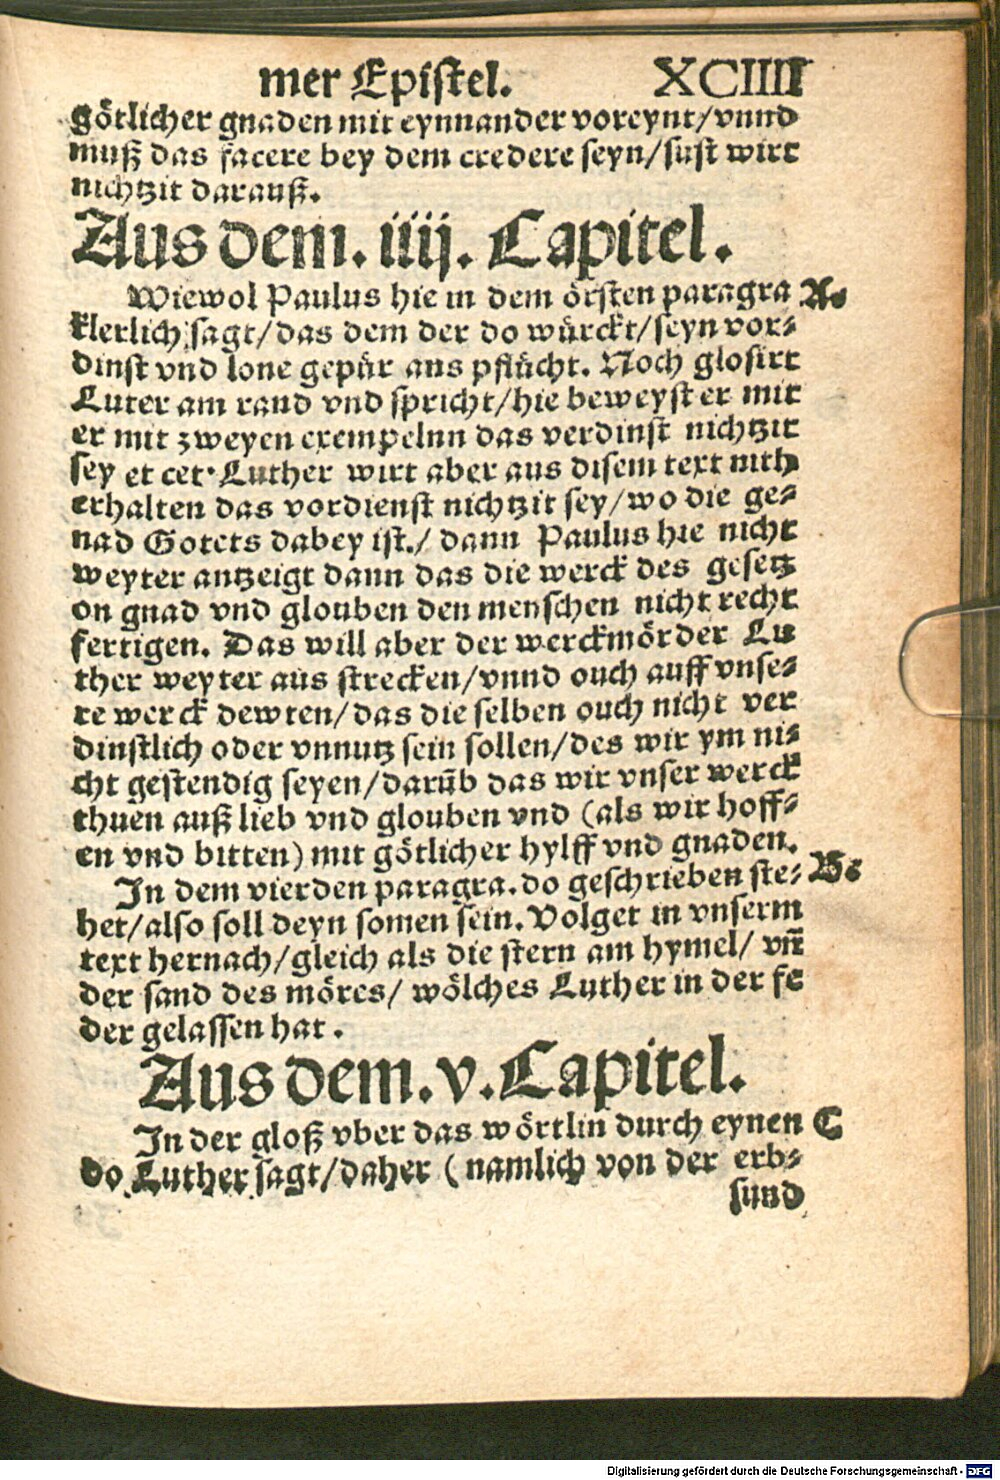 mer Epistel. XCIIII
götlicher gnaden mit eynnander voreynt/vnnd
muß das facere bey dem credere seyn/sust wirt
nichtzit darauß.
Aus dem. iiij. Capitel.
Wiewol Paulus hie in dem örsten paragra A.
klerlich sagt/das dem der do würckt/seyn vor⸗
dinst vnd lone gepür aus pflücht. Noch glosirt
Luter am rand vnd spricht/hie beweyst er mit
er mit zweyen exempelnn das verdinst nichtzit
sey et cet. Luther wirt aber aus disem text nith
erhalten das vordienst nichtzit sey/wo die ge⸗
nad Gotets dabey ist./ dann Paulus hie nicht
weyter antzeigt dann das die werck des gesetz
on gnad vnd glouben den menschen nicht recht
fertigen. Das will aber der werckmörder Lu
ther weyter aus strecken/vnnd ouch auff vnse⸗
re werck dewten/das die selben ouch nicht ver
dinstlich oder vnnutz sein sollen/des wir ym ni⸗
cht gestendig seyen/darūb das wir vnser werck
thuen auß lieb vnd glouben vnd (als wir hoff⸗
en vnd bitten) mit götlicher hylff vnd gnaden.
In dem vierden paragra. do geschrieben ste⸗ B.
het/also soll deyn somen sein. Volget in vnserm
text hernach/gleich als die stern am hymel/ vn̄
der sand des möres/ wölches Luther in der fe
der gelassen hat.
Aus dem. v. Capitel.
In der gloß vber das wörtlin durch eynen C
do Luther sagt/daher (namlich von der erb⸗
sund
Digitalisierung gefördert durch die Deutsche Forschungsgemeinschaft - DFG